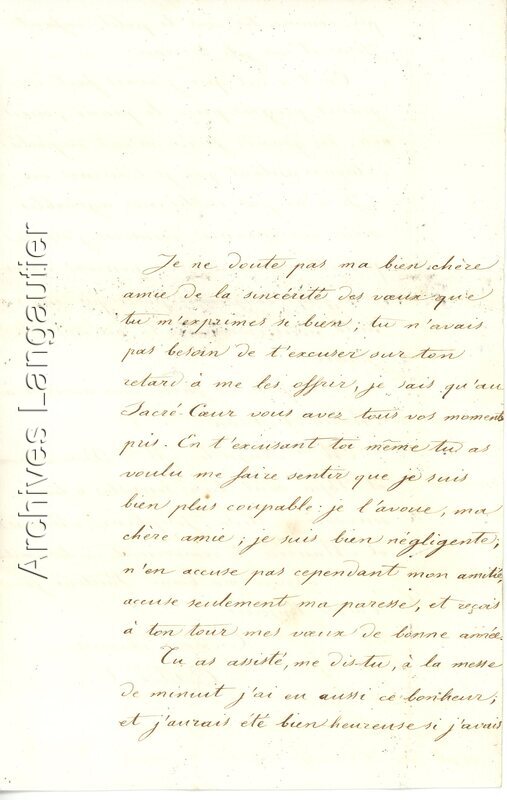 Je ne doute pas ma bien chère
amie de la sincérité des vœux que
tu m'exprimes si bien; tu n'avais
pas besoin de t'excuser sur ton
retard à me les offrir, je sais qu'au
Sacré-Cœur vous avez tous vos moments
pris. En t'excusant toi même tu as
voulu me faire sentir que je suis
bien plus coupable: je l'avoue, ma
chère amie; je suis bien négligente;
n'en accuse pas cependant mon amitié,
accuse seulement ma paresse, et reçois
à ton tour mes vœux de bonne année.
Tu as assisté, me dis-tu, à la messe
de minuit j'ai eu aussi ce bonheur,
et j'aurais été bien heureuse si j'avais
Archives Langautier